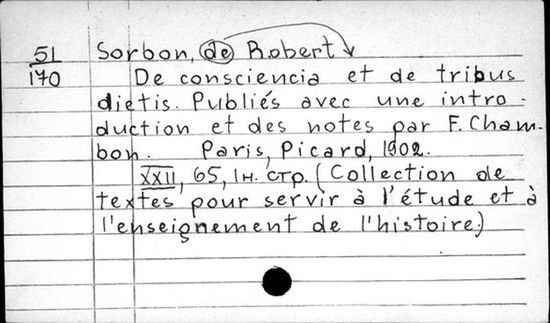 51 Sorbon, de Robert
170 De consciencia et de tribus
dietis. Publiés avec une intro-
duction et des notes par F. Cham-
bon. Paris, Picard, 1902.
XXII, 65, 1н. стр. (Collection de
textes pour servir à l'étude et à
l'enseignement de l'histoire.)